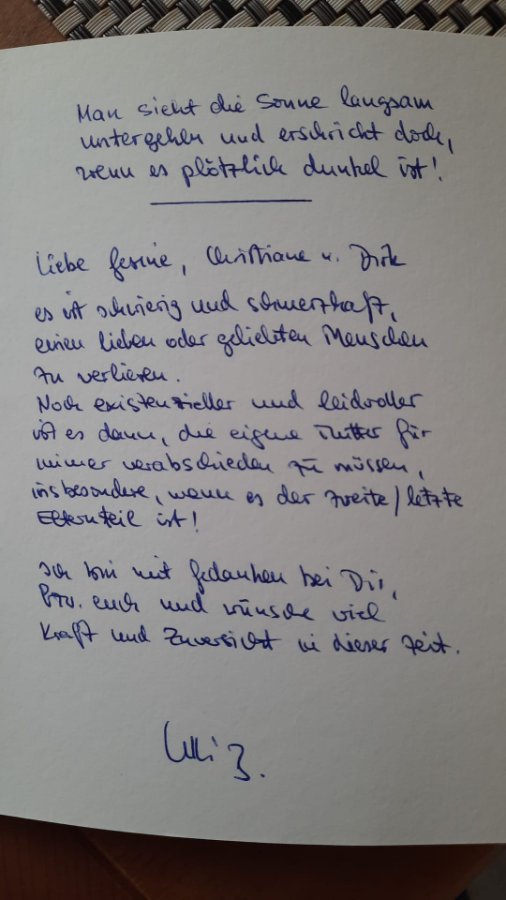 Man sieht die Sonne langsam
untergehen und erschrickt doch,
wenn es plötzlich dunkel ist!
Liebe Gesine, Christiane u. Dirk
es ist schwierig und schmerzhaft,
einen lieben oder geliebten Menschen
zu verlieren.
Noch existenzieller und leidvoller
ist es dann, die eigene Mutter für
immer verabschieden zu müssen,
insbesondere, wenn es der zweite/letzte
Elternteil ist!
Ich bin mit Gedanken bei Dir,
bzw. euch und wünsche viel
Kraft und Zuversicht in dieser Zeit.
Ulli B.